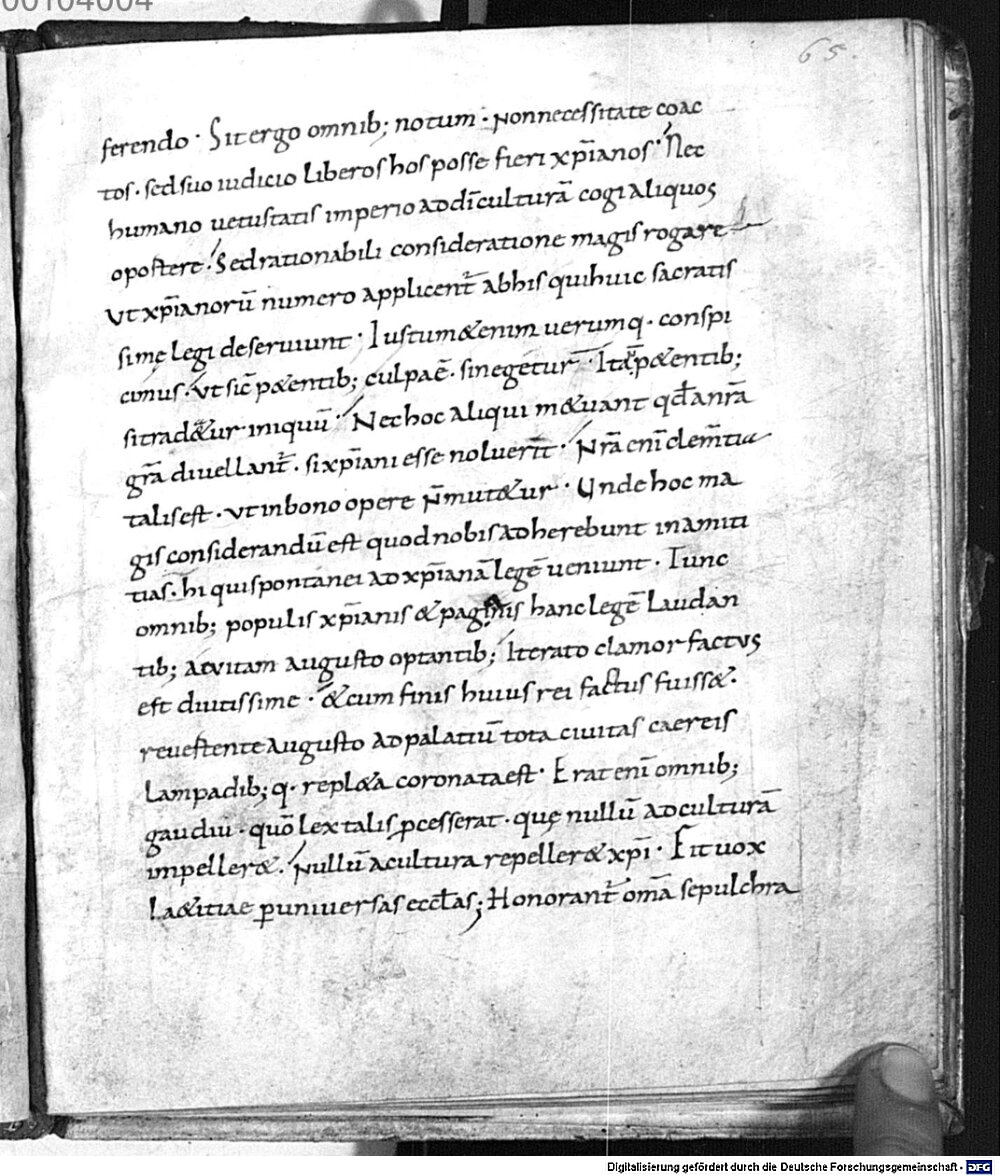 00104004
65.
ferendo · Sit ergo omnib; notum · non necessitate coac
tos · sed suo iudicio liberos hos posse fieri xp̄ianos · Nec
humano uetustatis imperio ad dī culturā cogi aliquos
oportere · Sed rationabili consideratione magis rogare
ut xp̄ianorū numero applicent̄ ab his qui huic sacratis
simę legi deseruiunt · Iustum &enim uerumq · conspi
cimus · ut sic̄ p&entib; culpaē · si neget̄ur · Ita p&entib;
si trad&ur iniquū · Nec hoc aliqui m&uant qđ a nr̄a
gr̄a diuellant̄ · si xp̄iani esse noluerīt · Nr̄a enī clem̄tia
talis est · ut in bono opere n̄ mut&ur · Unde hoc ma
gis considerandū est quod nobis adherebunt in amiti
tias · hi qui spontanei ad xp̄ianā legē ueniunt · Tunc
omnib; populis xp̄ianis & paganis hanc legē laudan
tib; ac uitam augusto optantib; Iterato clamor factus
est diutissime · & cum finis huius rei factus fuiss& ·
reuertente augusto ad palatiū tota ciuitas caereis
lampadib; q · repl&a coronata est · Erat enī omnib;
gaudiū · quō lex talis ꝓcesserat · quę nullū ad culturā
impeller& · Nullū a cultura repeller& xp̄i · Fit uox
la&itiae ꝑ uniuersas eccl̄as; Honorant̄ om̄a sepulchra
Digitalisierung gefördert durch die Deutsche Forschungsgemeinschaft · DFG